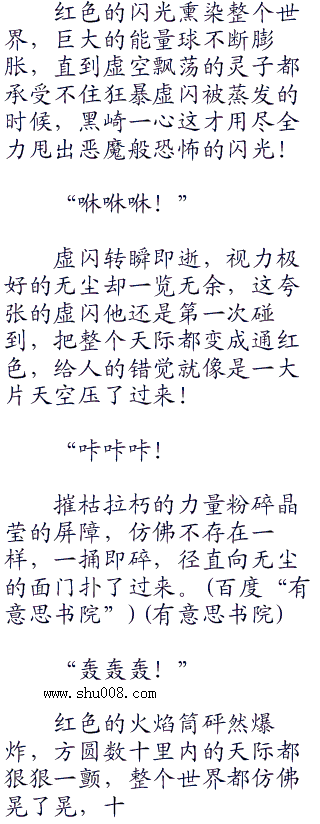 红色的闪光熏染整个世
界，巨大的能量球不断膨
胀，直到虚空飘荡的灵子都
承受不住狂暴虚闪被蒸发的
时候，黑崎一心这才用尽全
力甩出恶魔般恐怖的闪光！
“咻咻咻！”
虚闪转瞬即逝，视力极
好的无尘却一览无余，这夸
张的虚闪他还是第一次碰
到，把整个天际都变成通红
色，给人的错觉就像是一大
片天空压了过来！
“咔咔咔！
摧枯拉朽的力量粉碎晶
莹的屏障，仿佛不存在一
样，一捅即碎，径直向无尘
的面门扑了过来。(百度“有
意思书院”)(有意思书院)
“轰轰轰！”
www.shu008.com
红色的火焰筒砰然爆
炸，方圆数十里内的天际都
狠狠一颤，整个世界都仿佛
晃了晃，十